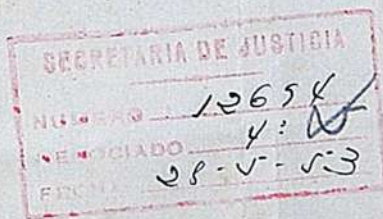 SECRETARIA DE JUSTICIA
NUMERO 12654
NEGOCIADO 4:
FECHA 28-V-53